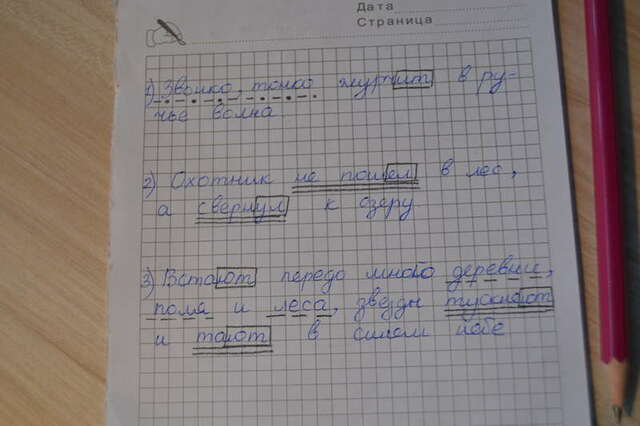 Дата
Страница
1) Звонко, тонко журчит в ру-
чье волна
2) Охотник не пошел в лес,
а свернул к озеру.
3) Встают передо мною деревни,
поля и леса, звезды тускнеют
и тают в синем небе